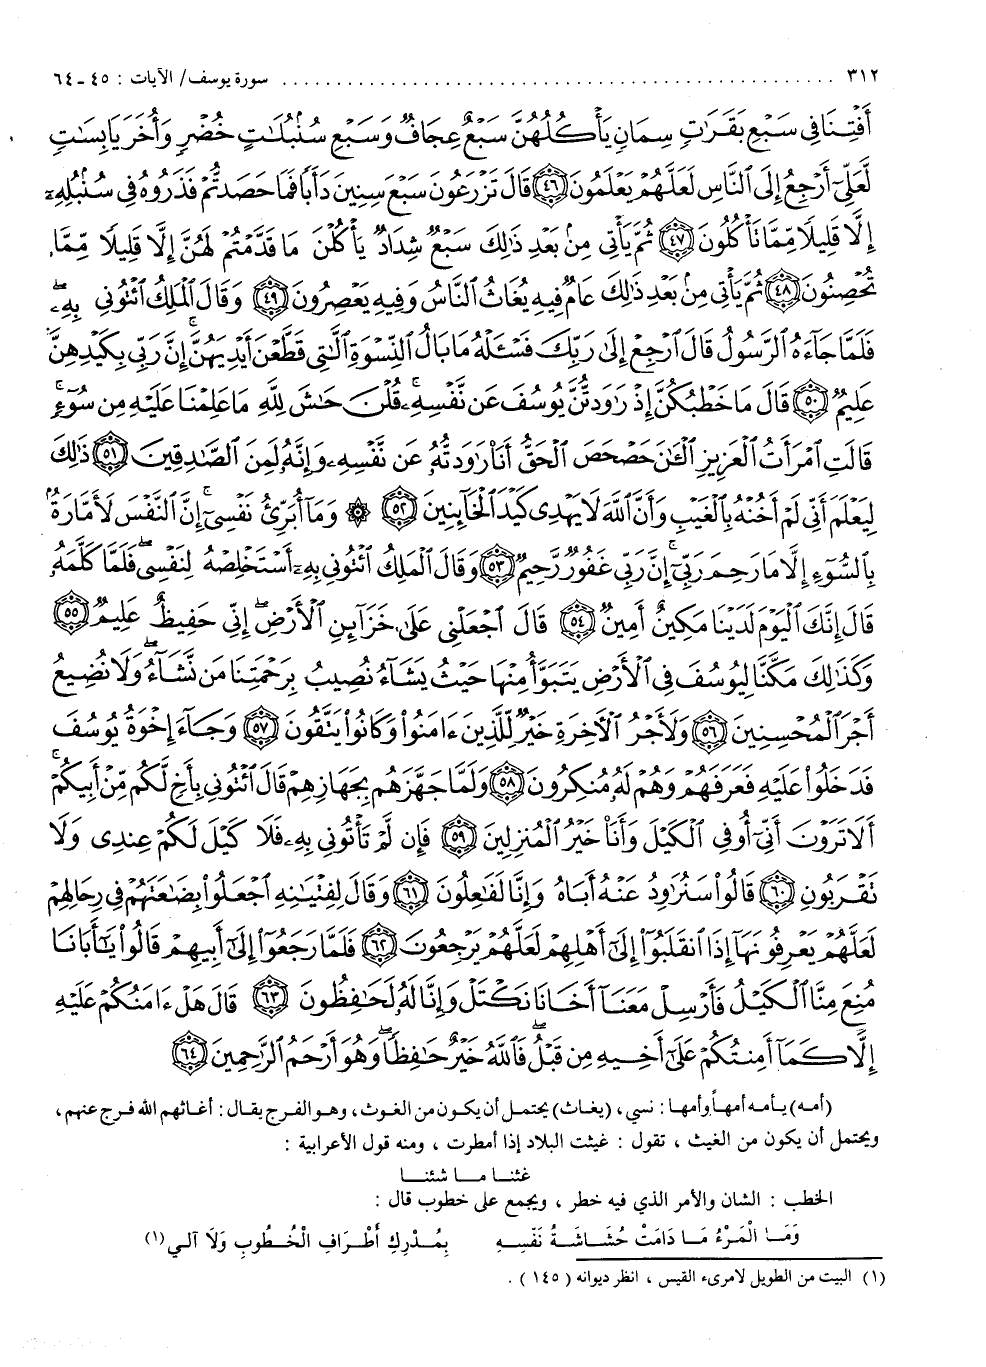 ٣١٢ ........................ سورة يوسف/ الآيات : ٤٥ ـ ٦٤
أَفْتِنَا فِي سَبْعِ بَقَرَٰتٍ سِمَانٍ يَأْكُلُهُنَّ سَبْعٌ عِجَافٌ وَسَبْعِ سُنۢبُلَٰتٍ خُضْرٍ وَأُخَرَ يَابِسَٰتٍ
لَّعَلِّيٓ أَرْجِعُ إِلَى ٱلنَّاسِ لَعَلَّهُمْ يَعْلَمُونَ ﴿٤٦﴾ قَالَ تَزْرَعُونَ سَبْعَ سِنِينَ دَأَبًا فَمَا حَصَدتُّمْ فَذَرُوهُ فِي سُنۢبُلِهِۦٓ
إِلَّا قَلِيلًا مِّمَّا تَأْكُلُونَ ﴿٤٧﴾ ثُمَّ يَأْتِي مِنۢ بَعْدِ ذَٰلِكَ سَبْعٌ شِدَادٌ يَأْكُلْنَ مَا قَدَّمْتُمْ لَهُنَّ إِلَّا قَلِيلًا مِّمَّا
تُحْصِنُونَ ﴿٤٨﴾ ثُمَّ يَأْتِي مِنۢ بَعْدِ ذَٰلِكَ عَامٌ فِيهِ يُغَاثُ ٱلنَّاسُ وَفِيهِ يَعْصِرُونَ ﴿٤٩﴾ وَقَالَ ٱلْمَلِكُ ٱئْتُونِي بِهِۦۖ
فَلَمَّا جَآءَهُ ٱلرَّسُولُ قَالَ ٱرْجِعْ إِلَىٰ رَبِّكَ فَسْـَٔلْهُ مَا بَالُ ٱلنِّسْوَةِ ٱلَّٰتِي قَطَّعْنَ أَيْدِيَهُنَّۚ إِنَّ رَبِّي بِكَيْدِهِنَّ
عَلِيمٌ ﴿٥٠﴾ قَالَ مَا خَطْبُكُنَّ إِذْ رَٰوَدتُّنَّ يُوسُفَ عَن نَّفْسِهِۦۚ قُلْنَ حَٰشَ لِلَّهِ مَا عَلِمْنَا عَلَيْهِ مِن سُوٓءٍۚ
قَالَتِ ٱمْرَأَتُ ٱلْعَزِيزِ ٱلْـَٰٔنَ حَصْحَصَ ٱلْحَقُّ أَنَا۠ رَٰوَدتُّهُۥ عَن نَّفْسِهِۦ وَإِنَّهُۥ لَمِنَ ٱلصَّٰدِقِينَ ﴿٥١﴾ ذَٰلِكَ
لِيَعْلَمَ أَنِّي لَمْ أَخُنْهُ بِٱلْغَيْبِ وَأَنَّ ٱللَّهَ لَا يَهْدِي كَيْدَ ٱلْخَآئِنِينَ ﴿٥٢﴾ ۞ وَمَآ أُبَرِّئُ نَفْسِيٓۚ إِنَّ ٱلنَّفْسَ لَأَمَّارَةٌۢ
بِٱلسُّوٓءِ إِلَّا مَا رَحِمَ رَبِّيٓۚ إِنَّ رَبِّي غَفُورٌ رَّحِيمٌ ﴿٥٣﴾ وَقَالَ ٱلْمَلِكُ ٱئْتُونِي بِهِۦٓ أَسْتَخْلِصْهُ لِنَفْسِيۖ فَلَمَّا كَلَّمَهُۥ
قَالَ إِنَّكَ ٱلْيَوْمَ لَدَيْنَا مَكِينٌ أَمِينٌ ﴿٥٤﴾ قَالَ ٱجْعَلْنِي عَلَىٰ خَزَآئِنِ ٱلْأَرْضِۖ إِنِّي حَفِيظٌ عَلِيمٌ ﴿٥٥﴾
وَكَذَٰلِكَ مَكَّنَّا لِيُوسُفَ فِي ٱلْأَرْضِ يَتَبَوَّأُ مِنْهَا حَيْثُ يَشَآءُۚ نُصِيبُ بِرَحْمَتِنَا مَن نَّشَآءُۖ وَلَا نُضِيعُ
أَجْرَ ٱلْمُحْسِنِينَ ﴿٥٦﴾ وَلَأَجْرُ ٱلْـَٔاخِرَةِ خَيْرٌ لِّلَّذِينَ ءَامَنُوا۟ وَكَانُوا۟ يَتَّقُونَ ﴿٥٧﴾ وَجَآءَ إِخْوَةُ يُوسُفَ
فَدَخَلُوا۟ عَلَيْهِ فَعَرَفَهُمْ وَهُمْ لَهُۥ مُنكِرُونَ ﴿٥٨﴾ وَلَمَّا جَهَّزَهُم بِجَهَازِهِمْ قَالَ ٱئْتُونِي بِأَخٍ لَّكُم مِّنْ أَبِيكُمْۚ
أَلَا تَرَوْنَ أَنِّيٓ أُوفِي ٱلْكَيْلَ وَأَنَا۠ خَيْرُ ٱلْمُنزِلِينَ ﴿٥٩﴾ فَإِن لَّمْ تَأْتُونِي بِهِۦ فَلَا كَيْلَ لَكُمْ عِندِي وَلَا
تَقْرَبُونِ ﴿٦٠﴾ قَالُوا۟ سَنُرَٰوِدُ عَنْهُ أَبَاهُ وَإِنَّا لَفَٰعِلُونَ ﴿٦١﴾ وَقَالَ لِفِتْيَٰنِهِ ٱجْعَلُوا۟ بِضَٰعَتَهُمْ فِي رِحَالِهِمْ
لَعَلَّهُمْ يَعْرِفُونَهَآ إِذَا ٱنقَلَبُوٓا۟ إِلَىٰٓ أَهْلِهِمْ لَعَلَّهُمْ يَرْجِعُونَ ﴿٦٢﴾ فَلَمَّا رَجَعُوٓا۟ إِلَىٰٓ أَبِيهِمْ قَالُوا۟ يَٰٓأَبَانَا
مُنِعَ مِنَّا ٱلْكَيْلُ فَأَرْسِلْ مَعَنَآ أَخَانَا نَكْتَلْ وَإِنَّا لَهُۥ لَحَٰفِظُونَ ﴿٦٣﴾ قَالَ هَلْ ءَامَنُكُمْ عَلَيْهِ
إِلَّا كَمَآ أَمِنتُكُمْ عَلَىٰٓ أَخِيهِ مِن قَبْلُۖ فَٱللَّهُ خَيْرٌ حَٰفِظًاۖ وَهُوَ أَرْحَمُ ٱلرَّٰحِمِينَ ﴿٦٤﴾
(أمه) يأمه أمهاً وأمها : نسي ، (يغاث) يحتمل أن يكون من الغوث، وهو الفرج يقال : أغاثهم الله فرج عنهم ،
ويحتمل أن يكون من الغيث ، تقول : غيثت البلاد إذا أمطرت ، ومنه قول الأعرابية :
غثنـا مـا شئنـا
الخطب : الشان والأمر الذي فيه خطر ، ويجمع على خطوب قال :
وَمَا الْمَرْءُ مَا دَامَتْ حُشَاشَةُ نَفْسِهِ بِمُدْرِكِ أَطْرَافِ الْخُطُوبِ وَلَا آلي (١)
(١) البيت من الطويل لامرىء القيس ، انظر ديوانه ( ١٤٥ ) .